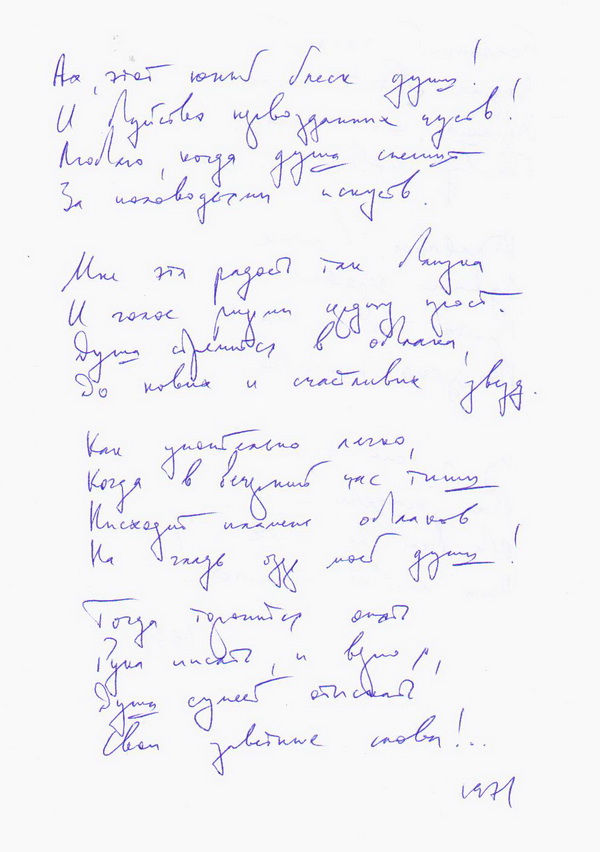 Ах, этот юный блеск души!
И буйство первозданных чувств!
Люблю, когда душа спешит
За половодьем искусств.
Мне эта радость так близка
И голос рифмы прост.
Душа стремится в облака,
До новых и счастливых звёзд.
Как упоительно легко,
Когда в безумный час тиши
Нисходит пламень облаков
На гладь озёр моей души!
Тогда торопится опять
Рука писать, и верю я,
Душа сумеет отыскать
Свои заветные слова!..
1971